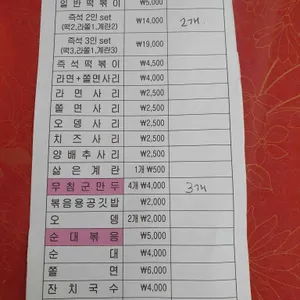 일 반 떡 볶 이 ₩5,000
즉석 2인 set ₩14,000 2개
(떡2,라쫄1,계란2)
즉석 3인 set ₩19,000
(떡3,라쫄1,계란3)
즉 석 떡 볶 이 ₩4,500
라면+쫄면사리 ₩4,000
라 면 사 리 ₩2,500
쫄 면 사 리 ₩2,500
오 뎅 사 리 ₩2,500
치 즈 사 리 ₩2,500
양 배 추 사 리 ₩2,500
삶 은 계 란 1개 ₩500
무 침 군 만 두 4개 ₩4,000 3개
볶음용공깃밥 ₩2,000
오 뎅 2개 ₩2,000
순 대 볶 음 ₩5,000
순 대 ₩4,000
쫄 면 ₩6,000
잔 치 국 수 ₩4,000